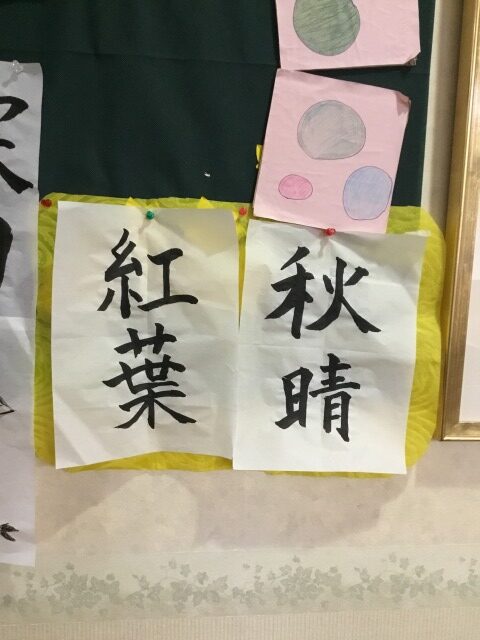 秋晴
紅葉